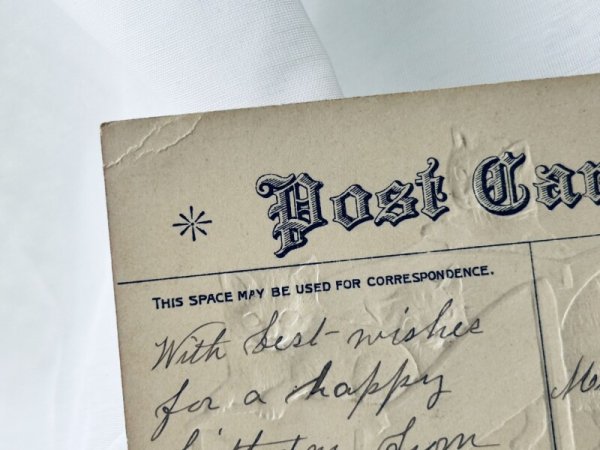 * Post Car
THIS SPACE MAY BE USED FOR CORRESPONDENCE.
With best wishes
for a happy
birthday from
M